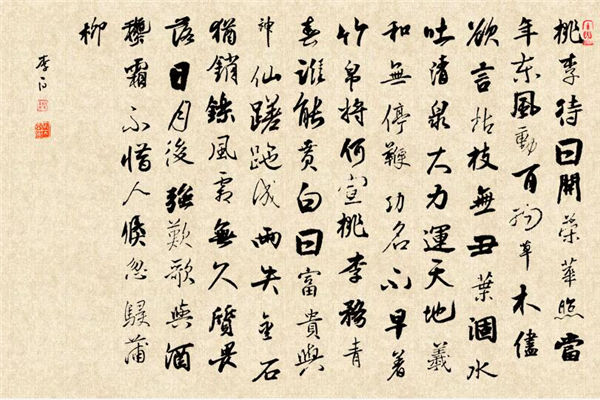 桃李待日開榮華照當
年東風動百物草木儘
欲言枯枝無丑葉涸水
吐清泉大力運天地羲
和無停鞭功名不早著
竹帛將何宣桃李務青
春誰能貰白日富貴與
神仙蹉跎成兩失金石
猶銷鑠風霜無久質畏
落日月後強歡歌與酒
秋霜不惜人倏忽駸蒲
柳
李